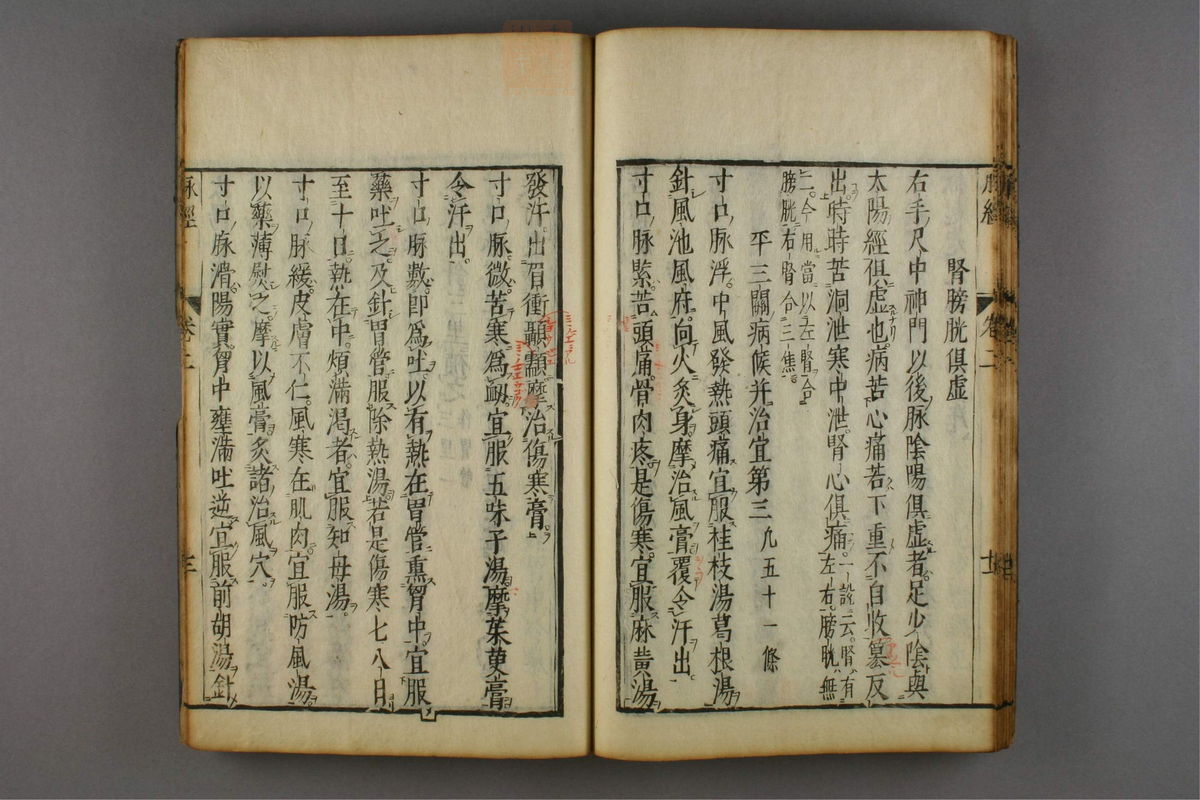 脉經 卷二 十二
腎膀胱俱虛
右手尺中神門以後脉陰陽俱虛者足少陰與
太陽經俱虛也病苦心痛若下重不自收篡反
出時時苦洞泄寒中泄腎心俱痛一說云腎有左右膀胱無
二今用當以左腎合膀胱右腎合三焦
平三關病候并治宜第三 凡五十一條
寸口脉浮中風發熱頭痛宜服桂枝湯葛根湯
針風池風府向火灸身摩治風膏覆令汗出
寸口脉緊苦頭痛骨肉疼是傷寒宜服麻黄湯
發汗出眉衝顳顬摩治傷寒膏
寸口脉微苦寒爲衂宜服五味子湯摩茱萸膏
令汗出
寸口脉數即爲吐以有熱在胃管熏胷中宜服
藥吐之及針胃管服除熱湯若是傷寒七八日
至十日熱在中煩滿渴者宜服知母湯
寸口脉緩皮膚不仁風寒在肌肉宜服防風湯
以藥薄熨之摩以風膏灸諸治風穴
寸口脉滑陽實胷中壅滿吐逆宜服前胡湯針
脉經 卷二